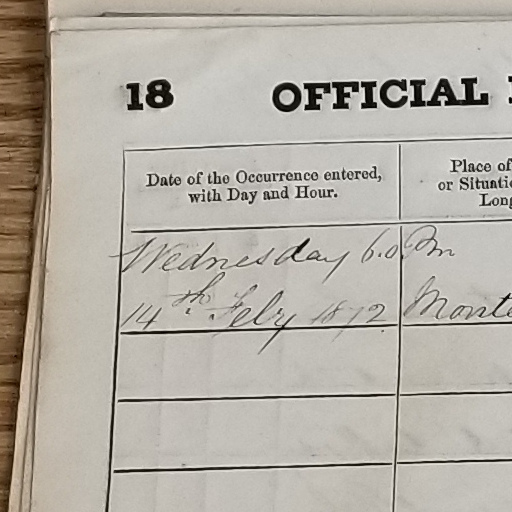 18 OFFICIAL
Date of the Occurrence entered,
with Day and Hour.
Place of
or Situatio
Long
Wednesday 6.0 Pm
14th Feby 1872 Monte